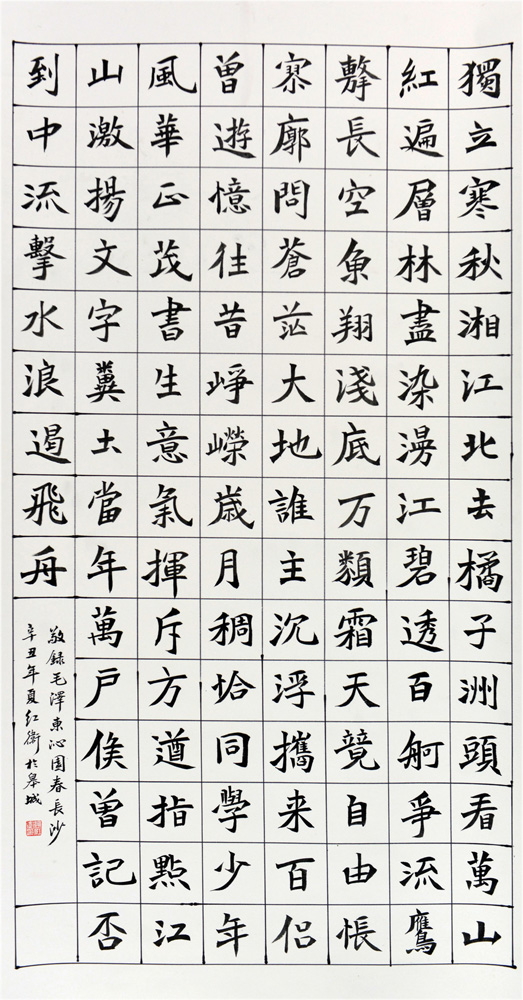 獨立寒秋湘江北去橘子洲頭看萬山
紅遍層林盡染漫江碧透百舸爭流鷹
擊長空魚翔淺底万類霜天競自由悵
寥廓問蒼茫大地誰主沉浮攜来百侣
曾遊憶往昔崢嶸歲月稠恰同學少年
風華正茂書生意氣揮斥方遒指點江
山激揚文字糞土當年萬戶侯曾記否
到中流擊水浪遏飛舟
敬録毛澤東沁園春長沙
辛丑年夏紅衛於皋城